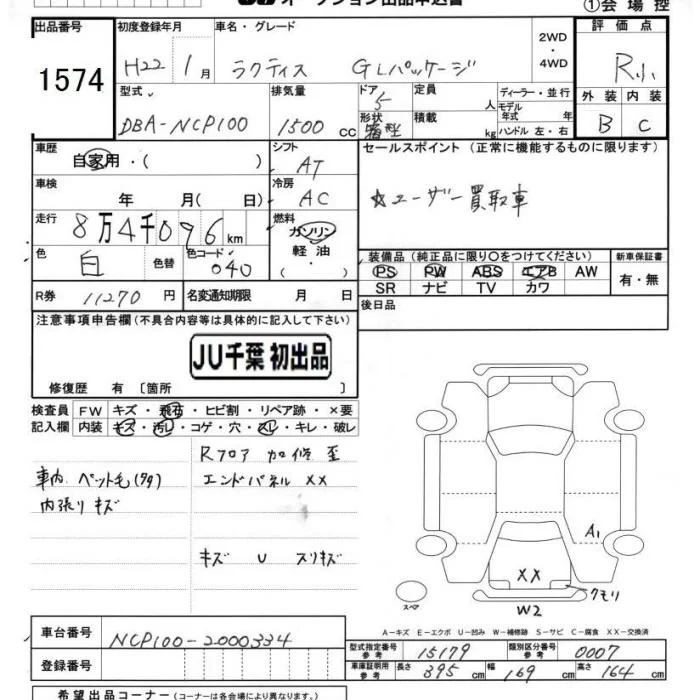 オークション出品申込書
①会場控
出品番号 初度登録年月 車名・グレード 2WD・4WD 評価点
1574 H22 1月 ラクティス GLパッケージ R小
型式 排気量 ドア 形状 定員 人 積載 kg ディーラー・並行 モデル年式 年 ハンドル 左・右 外装 内装
DBA-NCP100 1500cc 5 箱型 B C
車歴 自家用・( ) シフト AT セールスポイント (正常に機能するものに限ります)
車検 年 月( 日) 冷房 AC ☆ユーザー買取車
走行 8万4千096km 燃料 ガソリン 軽油・
色 白 色替 色コード 040 装備品 (純正品に限り○をつけてください) 新車保証書
PS PW ABS エアB AW 有・無
SR ナビ TV カワ
R券 11270円 名変通知期限 月 日 後日品
注意事項申告欄 (不具合内容等は具体的に記入して下さい)
JU千葉 初出品
修復歴 有 [箇所 ]
検査員記入欄 FW キズ・飛石・ヒビ割・リペア跡・×要
内装 キズ・汚レ・コゲ・穴・スレ・キレ・破レ
Rフロア 加修 歪
車内 ペット毛(タタ) エンドパネル XX
内張りキズ
キズ U スリキズ
A1
XX
クモリ
スペア
W2
A-キズ E-エクボ U-凹み W-補修跡 S-サビ C-腐食 XX-交換済
車台番号 NCP100-2000334
登録番号
型式指定番号 参考 15179 類別区分番号 参考 0007
車庫証明用 参考 長さ 395cm 幅 169cm 高さ 164cm
希望出品コーナー (コーナーは各会場により異なります。)